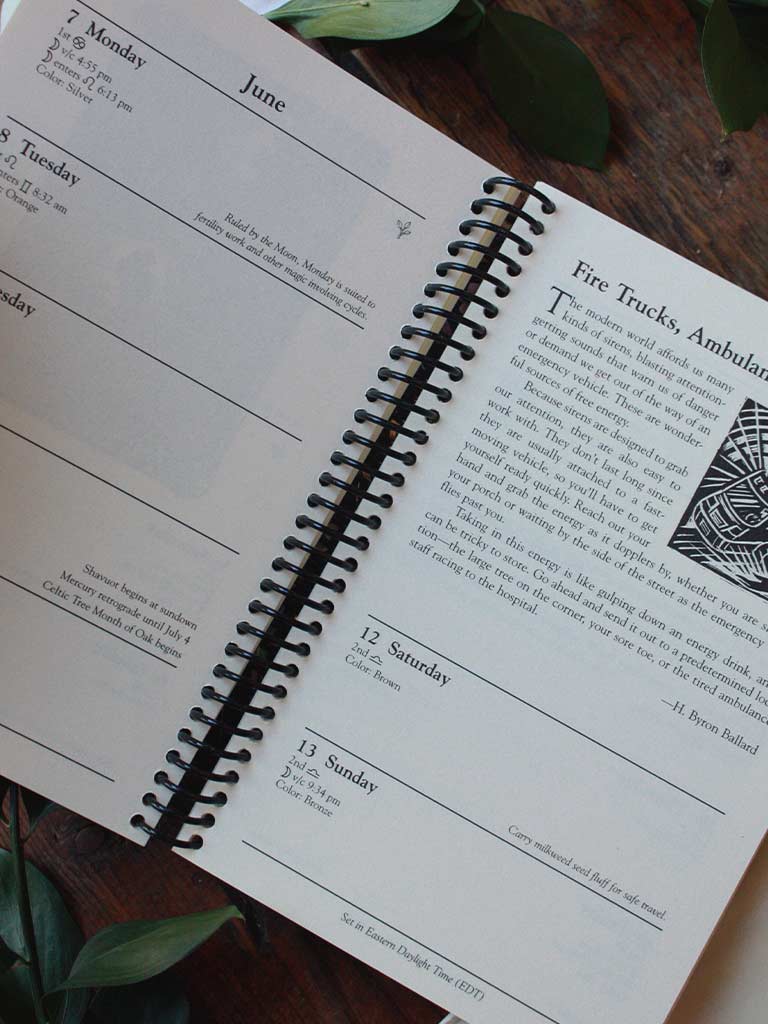 June
7 Monday
1st ♋
☽ v/c 4:55 pm
☽ enters ♌ 6:13 pm
Color: Silver
Ruled by the Moon, Monday is suited to
fertility work and other magic involving cycles.
8 Tuesday
♌
enters ♊ 8:32 am
Orange
Shavuot begins at sundown
Mercury retrograde until July 4
Celtic Tree Month of Oak begins
Fire Trucks,
The modern world affords us many
kinds of sirens, blasting attention-
getting sounds that warn us of danger
or demand we get out of the way of an
emergency vehicle. These are wonder-
ful sources of free energy.
Because sirens are designed to grab
our attention, they are also easy to
work with. They don't last long since
they are usually attached to a fast-
moving vehicle, so you'll have to get
yourself ready quickly. Reach out your
hand and grab the energy as it dopplers by, whether you are
your porch or waiting by the side of the street as the emergency
flies past you.
Taking in this energy is like gulping down an energy drink,
can be tricky to store. Go ahead and send it out to a predetermined
tion—the large tree on the corner, your sore toe, or the tired ambulance
staff racing to the hospital.
—H. Byron Ballard
12 Saturday
2nd ♎
Color: Brown
13 Sunday
2nd ♎
☽ v/c 9:34 pm
Color: Bronze
Carry milkweed seed fluff for safe travel.
Set in Eastern Daylight Time (EDT)